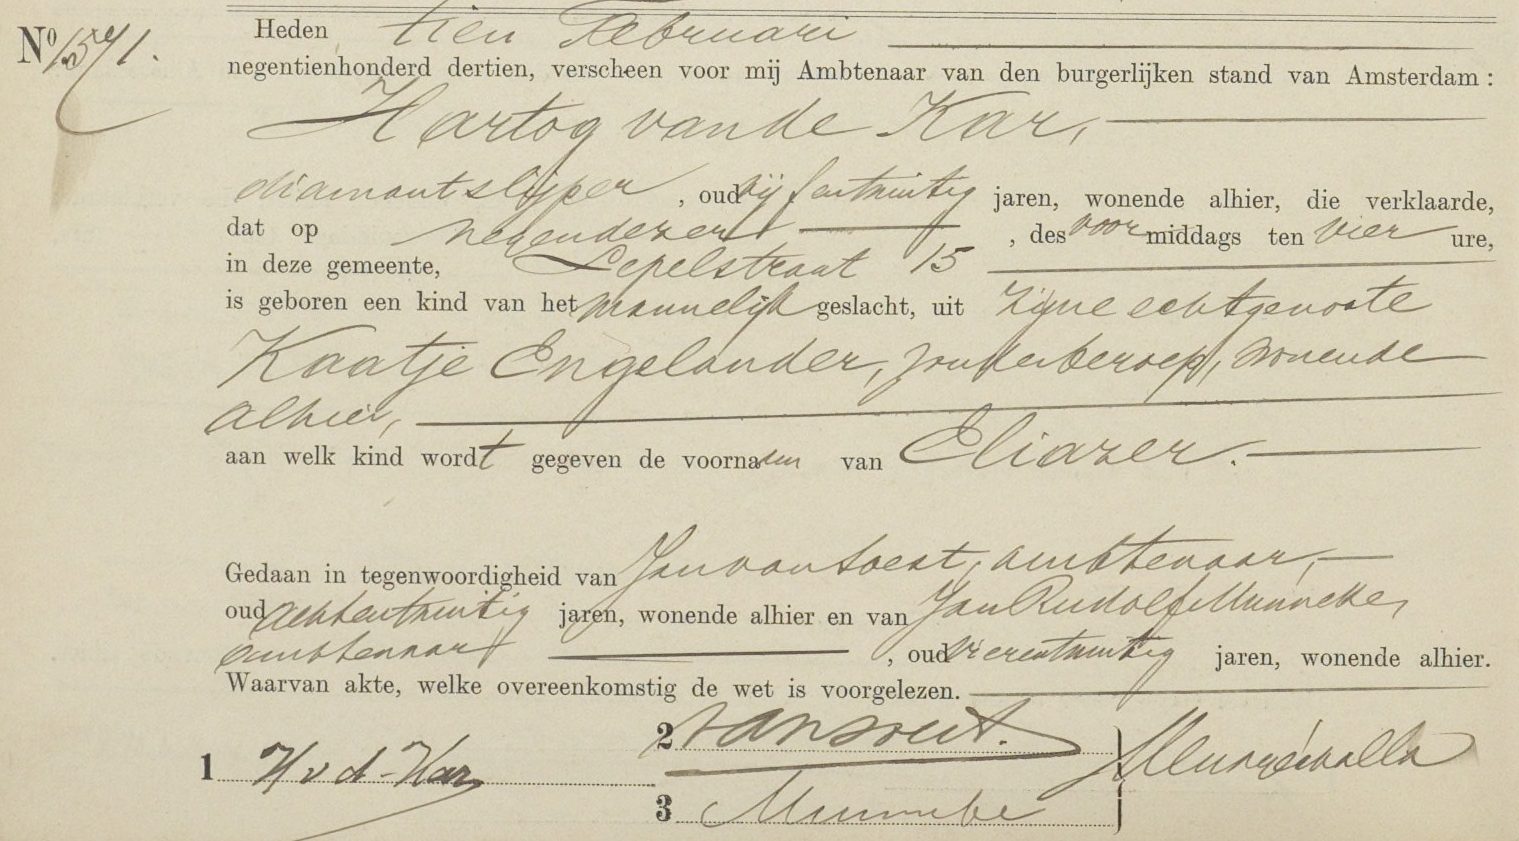 Nº 1571.
Heden tien Februari
negentienhonderd dertien, verscheen voor mij Ambtenaar van den burgerlijken stand van Amsterdam:
Hartog van de Kar,
diamantslijper, oud vijfentwintig jaren, wonende alhier, die verklaarde,
dat op negendezer, des voormiddags ten vier ure,
in deze gemeente, Lepelstraat 15
is geboren een kind van het mannelijk geslacht, uit zijne echtgenoote
Kaatje Engelander, zonder beroep, wonende
alhier,
aan welk kind wordt gegeven de voornamen van Eliazer.
Gedaan in tegenwoordigheid van Jan van Soest, ambtenaar,
oud achtentwintig jaren, wonende alhier en van Jan Rudolf Munneke,
ambtenaar, oud vierentwintig jaren, wonende alhier.
Waarvan akte, welke overeenkomstig de wet is voorgelezen.
1 H v d Kar
2 van Soest.
3 Munneke